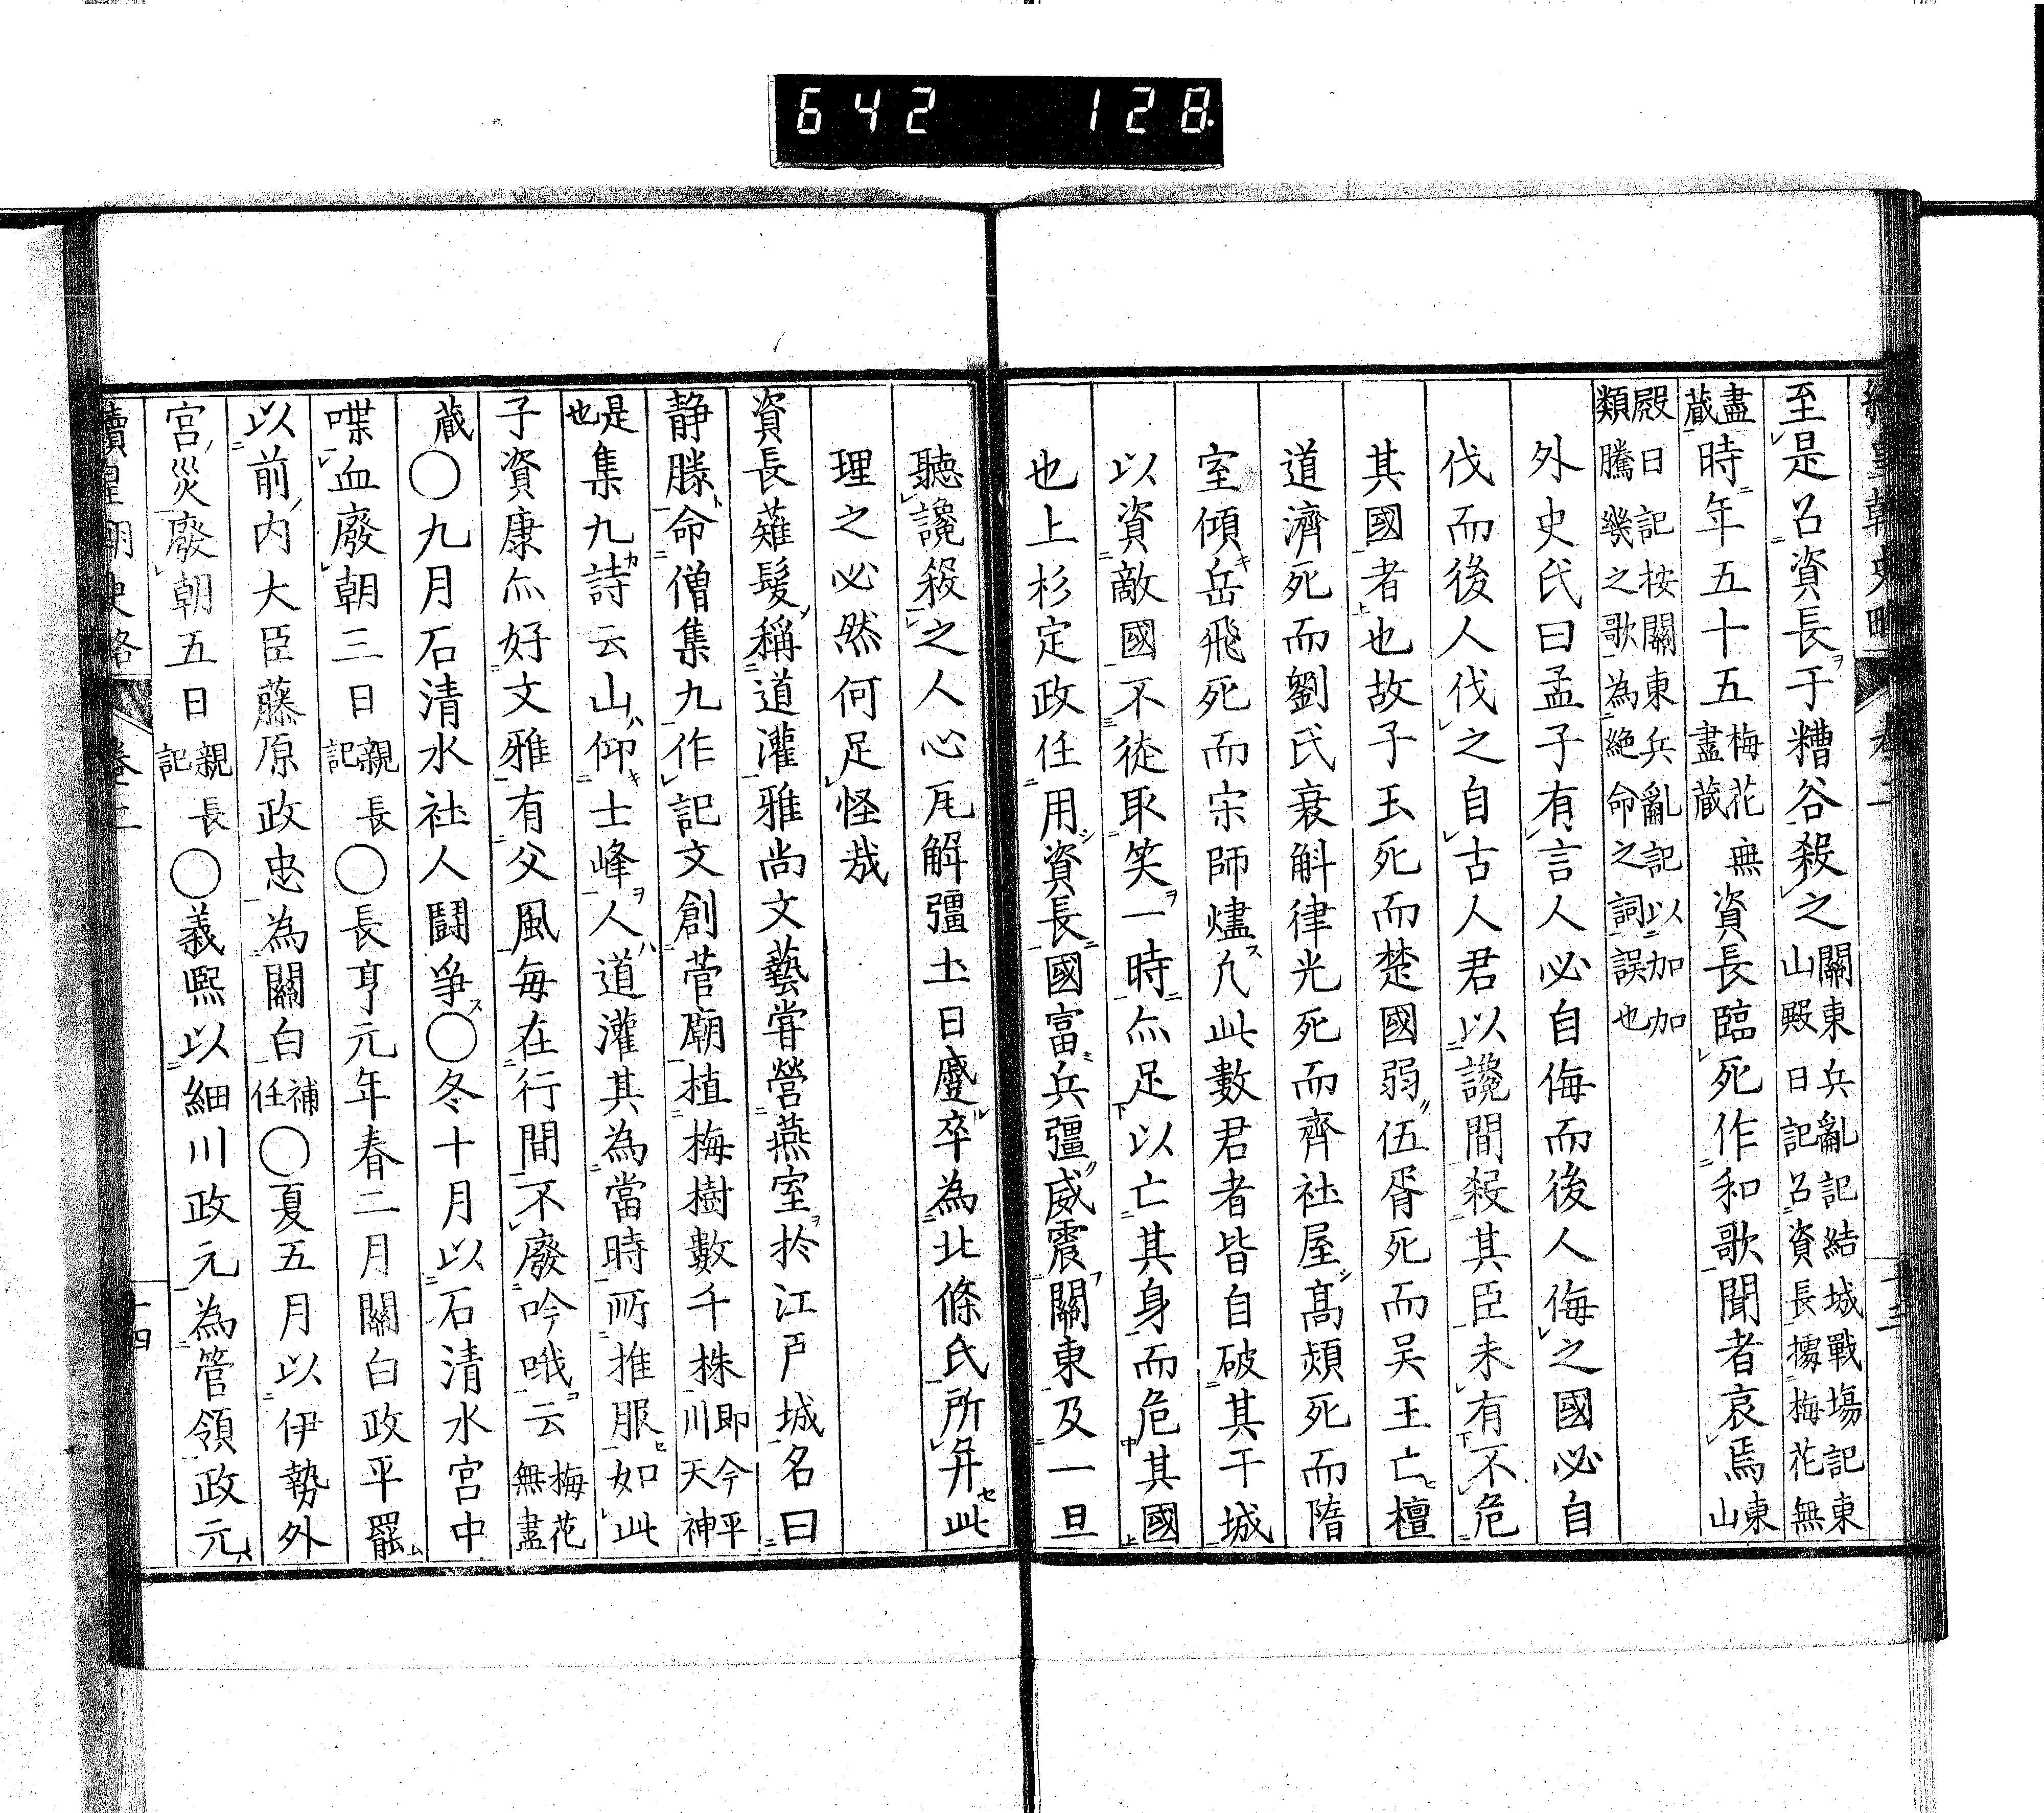 642 128
至是召資長于糟谷殺之關東兵亂記結城戰場記東山殿日記召資長據梅花無
盡藏時年五十五梅花無盡藏資長臨死作和歌聞者哀焉東山
殿日記按關東兵亂記以加加類騰幾之歌為絶命之詞誤也
外史氏曰孟子有言人必自侮而後人侮之國必自
伐而後人伐之自古人君以讒間殺其臣未有不危
其國者也故子玉死而楚國弱伍胥死而吴王亡檀
道濟死而劉氏衰斛律光死而齊社屋高熲死而隋
室傾岳飛死而宋師燼凢此數君者皆自破其干城
以資敵國不徒取笑一時亦足以亡其身而危其國
也上杉定政任用資長國富兵彊威震關東及一旦
聽讒殺之人心瓦解彊土日蹙卒為北條氏所并此
理之必然何足怪哉
資長薙髮稱道灌雅尚文藝嘗營燕室於江戸城名曰
静勝命僧集九作記文創菅廟植梅樹數千株即今平川天神
是也集九詩云山仰士峰人道灌其為當時所推服如此
子資康亦好文雅有父風每在行間不廢吟哦云梅花無盡
藏〇九月石清水社人鬪爭〇冬十月以石清水宮中
喋血廢朝三日親長記〇長亨元年春二月關白政平罷
以前内大臣藤原政忠為關白補任〇夏五月以伊勢外
宮災廢朝五日親長記〇義熈以細川政元為管領政元
續皇朝史略 卷二 十四